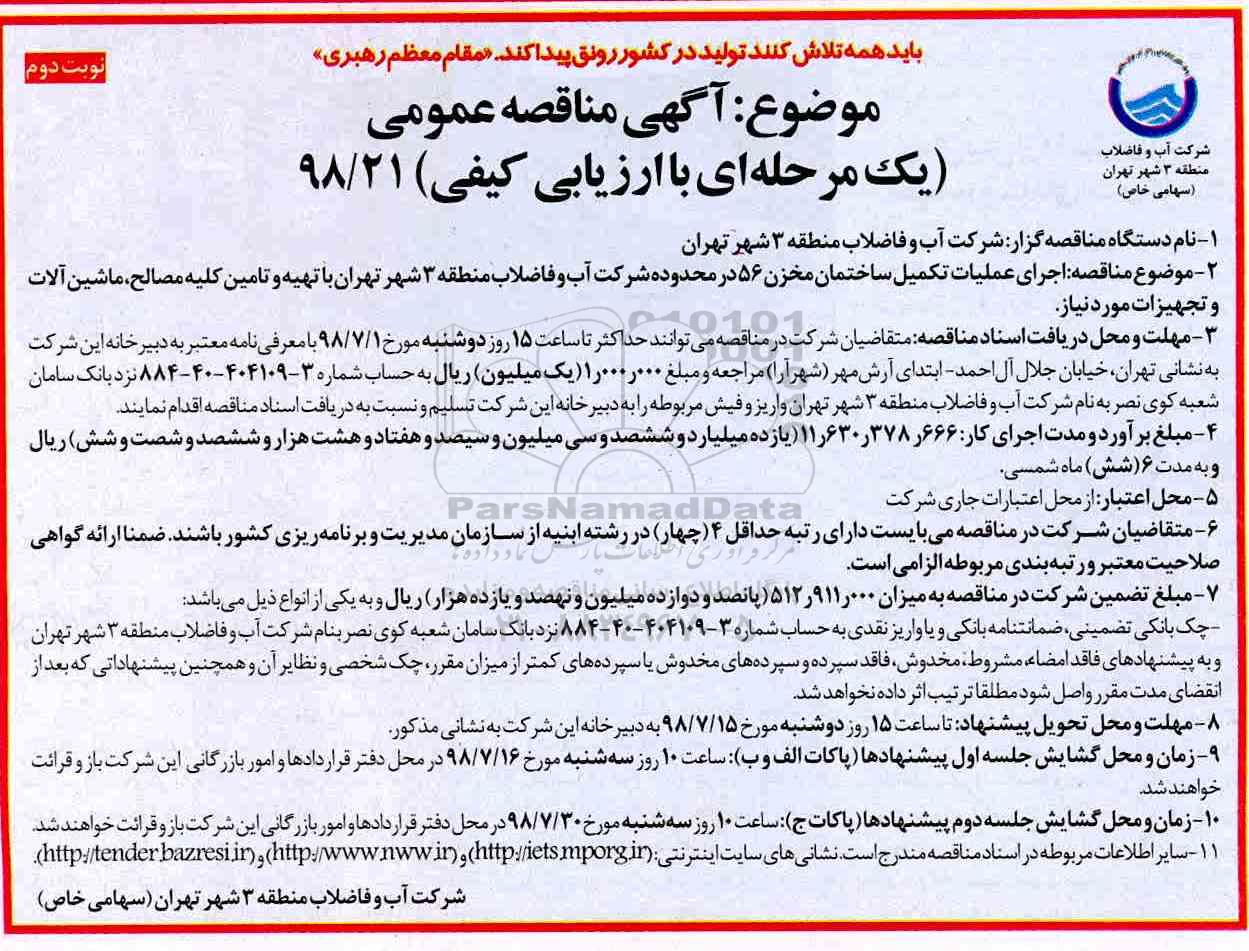 باید همه تلاش کنند تولید در کشور رونق پیدا کند. «مقام معظم رهبری»
نوبت دوم
موضوع: آگهی مناقصه عمومی
(یک مرحله‌ای با ارزیابی کیفی) ۹۸/۲۱
شرکت آب و فاضلاب
منطقه ۳ شهر تهران
(سهامی خاص)
۱-نام دستگاه مناقصه گزار: شرکت آب و فاضلاب منطقه ۳ شهر تهران
۲-موضوع مناقصه: اجرای عملیات تکمیل ساختمان مخزن ۵۶ در محدوده شرکت آب و فاضلاب منطقه ۳ شهر تهران با تهیه و تامین کلیه مصالح، ماشین آلات
و تجهیزات مورد نیاز.
۳-مهلت و محل دریافت اسناد مناقصه: متقاضیان شرکت در مناقصه می‌توانند حداکثر تا ساعت ۱۵ روز دوشنبه مورخ ۹۸/۷/۱ با معرفی نامه معتبر به دبیرخانه این شرکت
به نشانی تهران، خیابان جلال آل‌احمد- ابتدای آرش مهر (شهرآرا) مراجعه و مبلغ ۱٫۰۰۰٫۰۰۰ (یک میلیون) ریال به حساب شماره ۳-۴۰۴۱۰۹-۴۰-۸۸۴ نزد بانک سامان
شعبه کوی نصر به نام شرکت آب و فاضلاب منطقه ۳ شهر تهران واریز و فیش مربوطه را به دبیرخانه این شرکت تسلیم و نسبت به دریافت اسناد مناقصه اقدام نمایند.
۴-مبلغ برآورد و مدت اجرای کار: ۱۱٫۶۳۰٫۳۷۸٫۶۶۶ (یازده میلیارد و ششصد و سی میلیون و سیصد و هفتاد و هشت هزار و ششصد و شصت و شش) ریال
و به مدت ۶ (شش) ماه شمسی.
۵-محل اعتبار: از محل اعتبارات جاری شرکت
۶-متقاضیان شرکت در مناقصه می‌بایست دارای رتبه حداقل ۴ (چهار) در رشته ابنیه از سازمان مدیریت و برنامه ریزی کشور باشند. ضمنا ارائه گواهی
صلاحیت معتبر و رتبه بندی مربوطه الزامی است.
۷-مبلغ تضمین شرکت در مناقصه به میزان ۵۱۲٫۹۱۱٫۰۰۰ (پانصد و دوازده میلیون و نهصد و یازده هزار) ریال و به یکی از انواع ذیل می‌باشد:
-چک بانکی تضمینی، ضمانتنامه بانکی و یا واریز نقدی به حساب شماره ۳-۴۰۴۱۰۹-۴۰-۸۸۴ نزد بانک سامان شعبه کوی نصر بنام شرکت آب و فاضلاب منطقه ۳ شهر تهران
و به پیشنهادهای فاقد امضاء، مشروط، مخدوش، فاقد سپرده و سپرده‌های مخدوش یا سپرده‌های کمتر از میزان مقرر، چک شخصی و نظایر آن و همچنین پیشنهاداتی که بعد از
انقضای مدت مقرر واصل شود مطلقا ترتیب اثر داده نخواهد شد.
۸-مهلت و محل تحویل پیشنهاد: تا ساعت ۱۵ روز دوشنبه مورخ ۹۸/۷/۱۵ به دبیرخانه این شرکت به نشانی مذکور.
۹-زمان و محل گشایش جلسه اول پیشنهادها (پاکات الف و ب): ساعت ۱۰ روز سه‌شنبه مورخ ۹۸/۷/۱۶ در محل دفتر قراردادها و امور بازرگانی این شرکت باز و قرائت
خواهند شد.
۱۰-زمان و محل گشایش جلسه دوم پیشنهادها (پاکات ج): ساعت ۱۰ روز سه‌شنبه مورخ ۹۸/۷/۳۰ در محل دفتر قراردادها و امور بازرگانی این شرکت باز و قرائت خواهند شد.
۱۱-سایر اطلاعات مربوطه در اسناد مناقصه مندرج است. نشانی های سایت اینترنتی: (http://iets.mporg.ir) و (http://www.nww.ir) و (http://tender.bazresi.ir).
شرکت آب و فاضلاب منطقه ۳ شهر تهران (سهامی خاص)
ParsNamadData